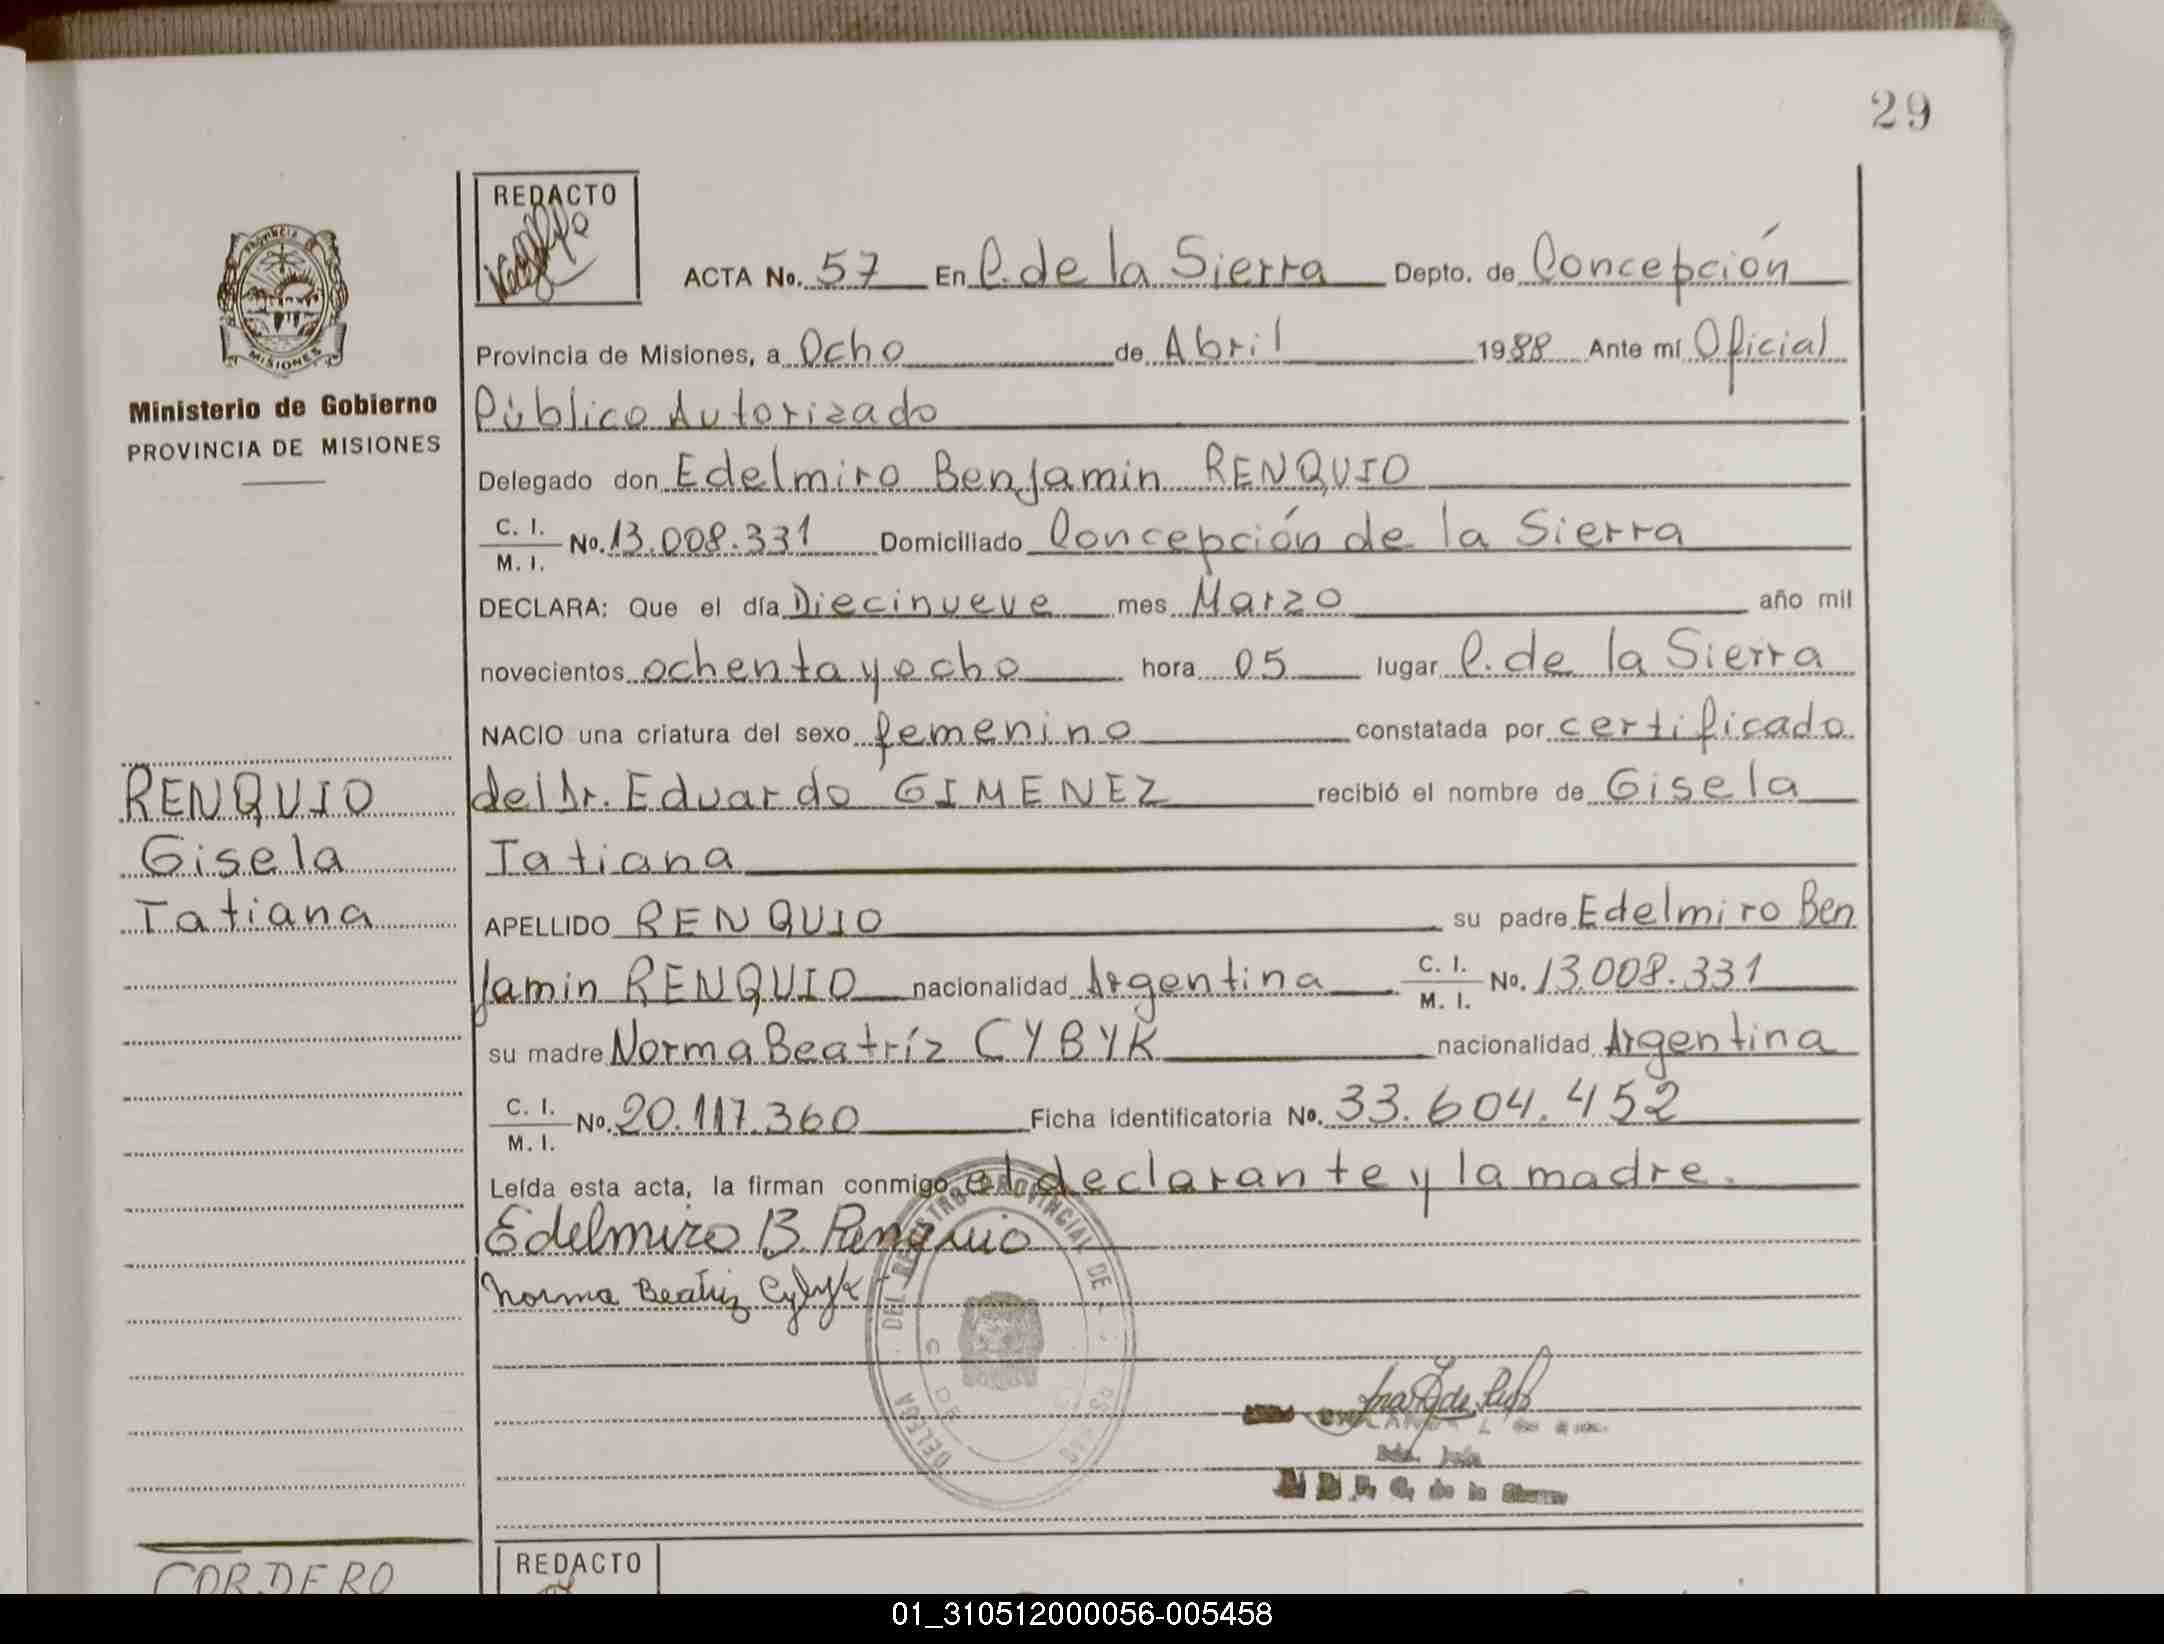 29
REDACTO
PROVINCIA DE
MISIONES
Ministerio de Gobierno
PROVINCIA DE MISIONES
ACTA No. 57 En C. de la Sierra Depto. de Concepción
Provincia de Misiones, a Ocho de Abril 1988 Ante mí Oficial
Público Autorizado
Delegado don Edelmiro Benjamin RENQUIO
C. I.
M. I. No. 13.008.331 Domiciliado Concepción de la Sierra
DECLARA: Que el día Diecinueve mes Marzo año mil
novecientos ochenta y ocho hora 05 lugar C. de la Sierra
NACIO una criatura del sexo femenino constatada por certificado
del Dr. Eduardo GIMENEZ recibió el nombre de Gisela
Tatiana
RENQUIO
Gisela
Tatiana
APELLIDO RENQUIO su padre Edelmiro Ben
jamin RENQUIO nacionalidad Argentina C. I.
M. I. No. 13.008.331
su madre Norma Beatríz CYBYK nacionalidad Argentina
C. I.
M. I. No. 20.117.360 Ficha identificatoria No. 33.604.452
Leída esta acta, la firman conmigo el declarante y la madre.
Edelmiro B. Renquio
Norma Beatriz Cybyk
DELEGA DEL REGISTRO PROVINCIAL DE
de la Sierra
CORDERO
REDACTO
01_310512000056-005458